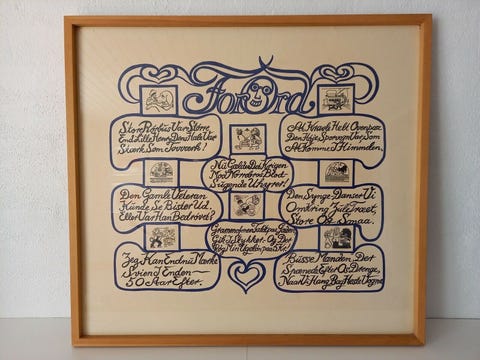 ForOrd
Stor Rasmus Var Større
End Lille Henr. Den Hale Var
Stærk Som Tovværk!
At Knæle Helt Ovenpaa
Den Høje Sporvogn Var Som
At Komme I Himmelen.
Nu Gælder Det Krigen
Mod Mørkets Blod-
Sugende Uhyrer!
Den Gamle Veteran
Kunde Se Bister Ud.
Eller Var Han Bedrøvet?
Den Synge-Danser Vi
Omkring Juletræet,
Store Og Smaa.
Grammofonen Faldt paa Jorden
Gik I Stykker - Og Der
Jeg Kan Endnu Mærke
Svien I Enden -
50 Aar Efter.
Bøsse Manden, Der
Spændte Efter Os Drenge,
Naar Vi Hang Bag Heste Vogne